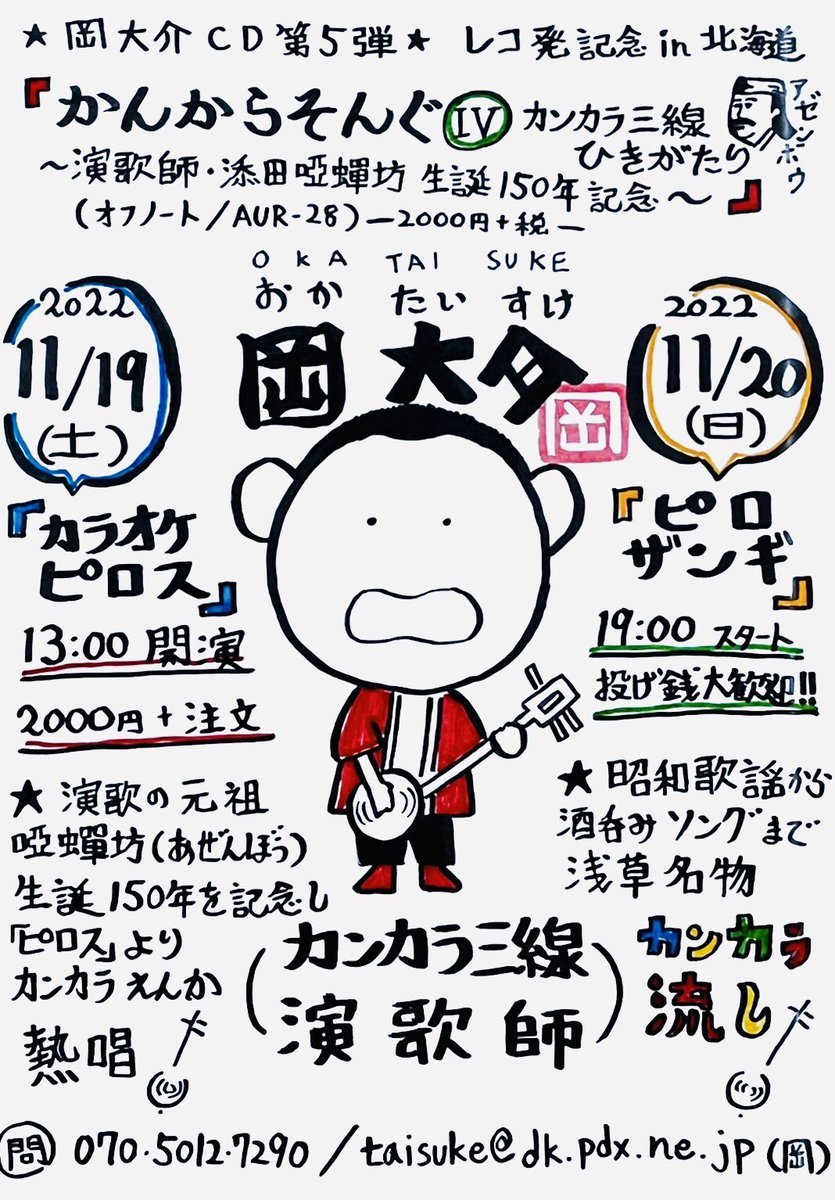 ★ 岡大介CD第5弾★ レコ発記念in北海道
『かんからそんぐⅣ カンカラ三線
ひきがたり
アゼンボウ
～演歌師・添田啞蟬坊 生誕150年記念～』
(オフノート/AUR-28)ー2000円+税ー
OKA TAI SUKE
おか たい すけ
岡 大介
岡
2022
11/19
(土)
『カラオケ
ピロス』
13:00 開演
2000円+注文
★ 演歌の元祖
啞蟬坊(あぜんぼう)
生誕150年を記念し
「ピロス」より
カンカラえんか
熱唱
2022
11/20
(日)
『ピロ
ザンギ』
19:00 スタート
投げ銭大歓迎!!
★ 昭和歌謡から
酒呑みソングまで
浅草名物
カンカラ
流し
(カンカラ三線
演歌師)
問 070.5012.7290/taisuke@dk.pdx.ne.jp(岡)